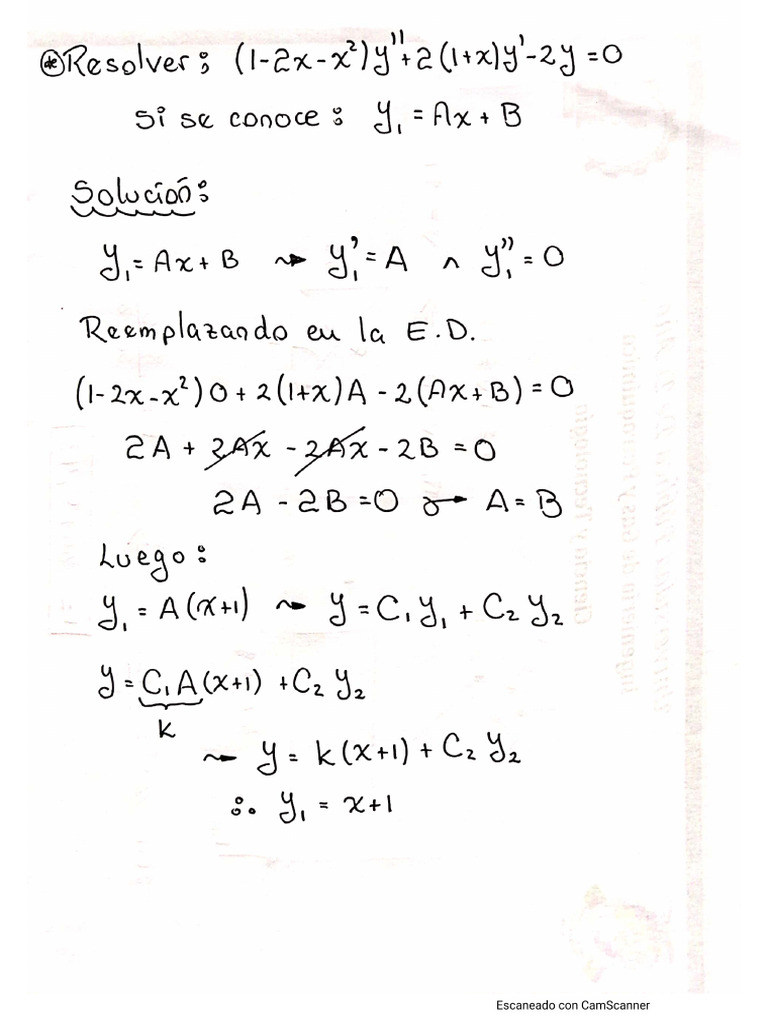 ⊛ Resolver: (1-2x-x²)y''+2(1+x)y'-2y=0
si se conoce: y₁ = Ax + B
Solución:
y₁ = Ax + B ⇝ y₁' = A ∧ y₁'' = 0
Reemplazando en la E.D.
(1-2x-x²)0 + 2(1+x)A - 2(Ax+B) = 0
2A + 2Ax - 2Ax - 2B = 0
2A - 2B = 0 → A = B
Luego:
y₁ = A(x+1) ⇝ y = C₁y₁ + C₂y₂
y = C₁A(x+1) + C₂y₂
k
⇝ y = k(x+1) + C₂y₂
∴ y₁ = x+1
Escaneado con CamScanner